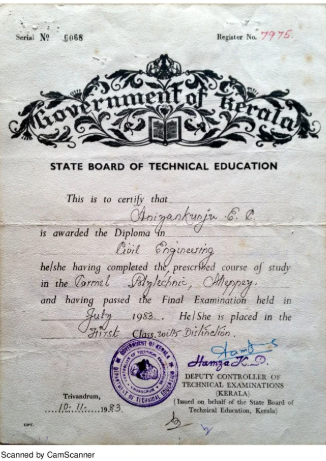 Serial No 0068
Register No. 7975.
Government of Kerala
STATE BOARD OF TECHNICAL EDUCATION
This is to certify that
Aniyankunju E. O
is awarded the Diploma in
Civil Engineering
he/she having completed the prescribed course of study
in the Carmel Polytechnic, Alleppey.
and having passed the Final Examination held in
July 1983. He/She is placed in the
First Class with Distinction.
Hamza K. O
DEPUTY CONTROLLER OF
TECHNICAL EXAMINATIONS
(KERALA)
(Issued on behalf of the State Board of
Technical Education, Kerala)
Trivandrum,
10. 11. 1983
Scanned by CamScanner